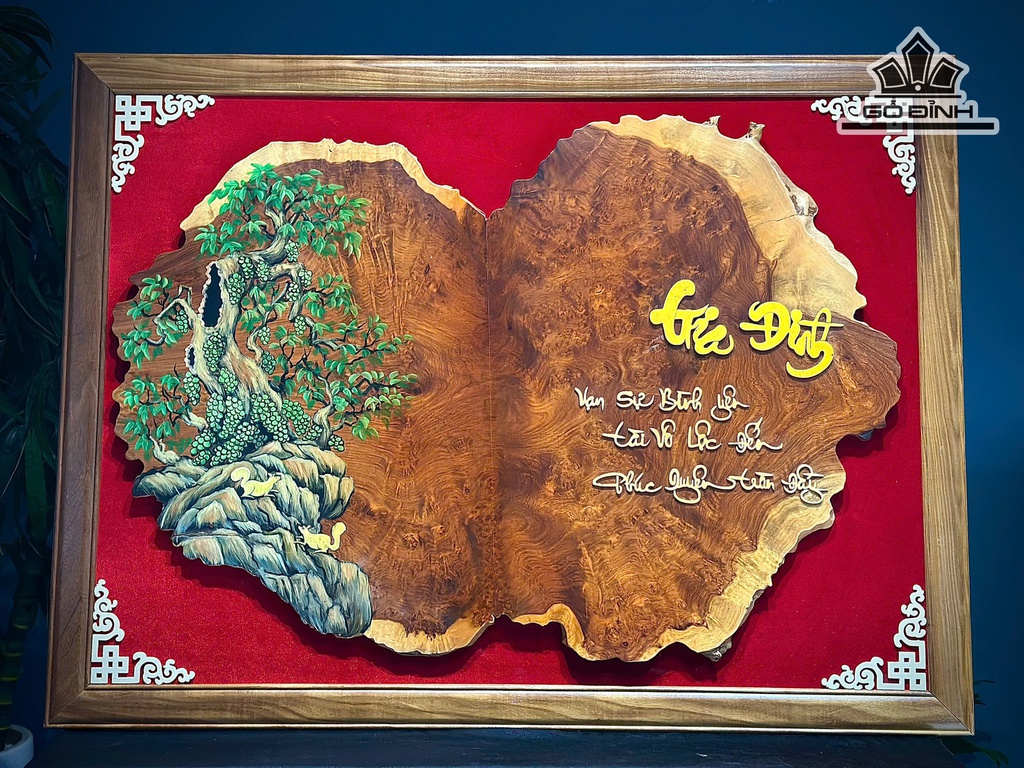 GỖ ĐỈNH
Gia Đình
Vạn Sự Bình yên
tài Vô Lộc Đến
Phúc Quyền tràn Đầy